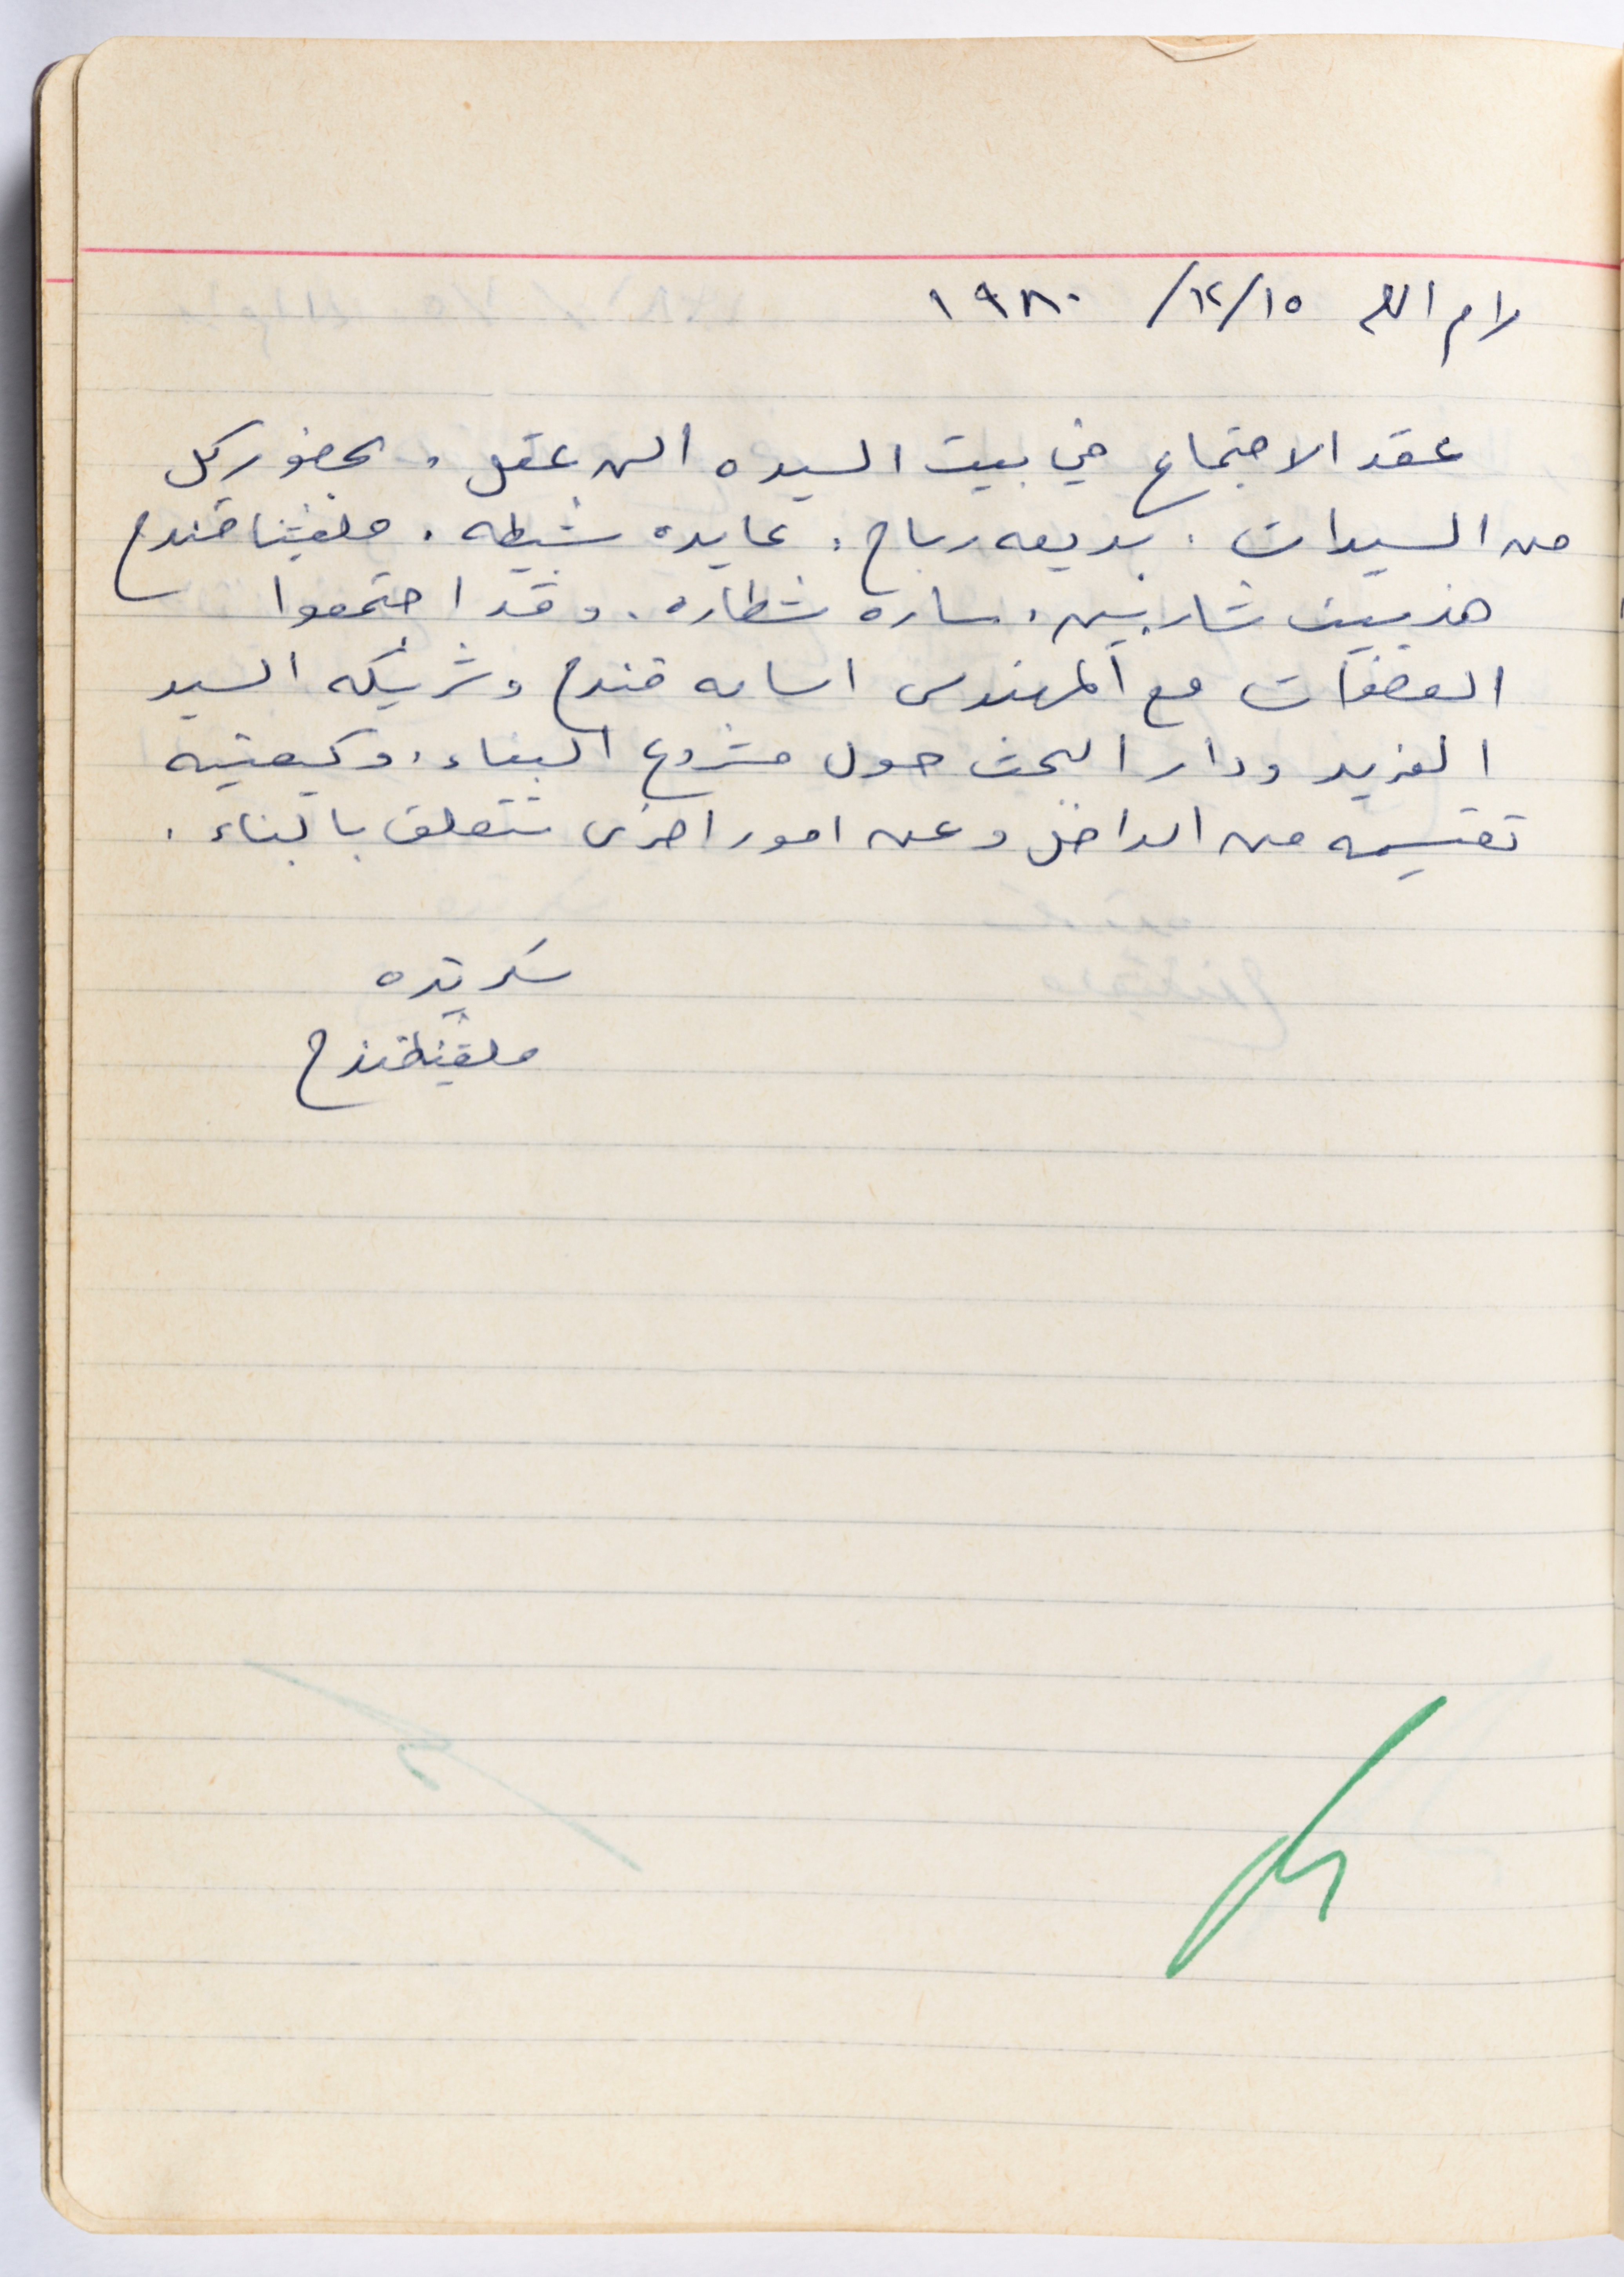 رام الله ١٥/١٢/ ١٩٨٠
عقد الاجتماع في بيت السيده السن عقل، بحضور كل
من السيدات. بديعه رباح، عايده شيطه، ملفينا قندح
هذبيت شاربين، ساره شطاره. وقد اجتمعوا
العضوات مع المهندس اسامه قندح وشريكه السيد
الفريد ودار البحث حول مشروع البناء، وكيفية
تقسيمه من الداخل وعن امور اخرى تتعلق بالبناء.
سكرتيره
ملفينا قندح